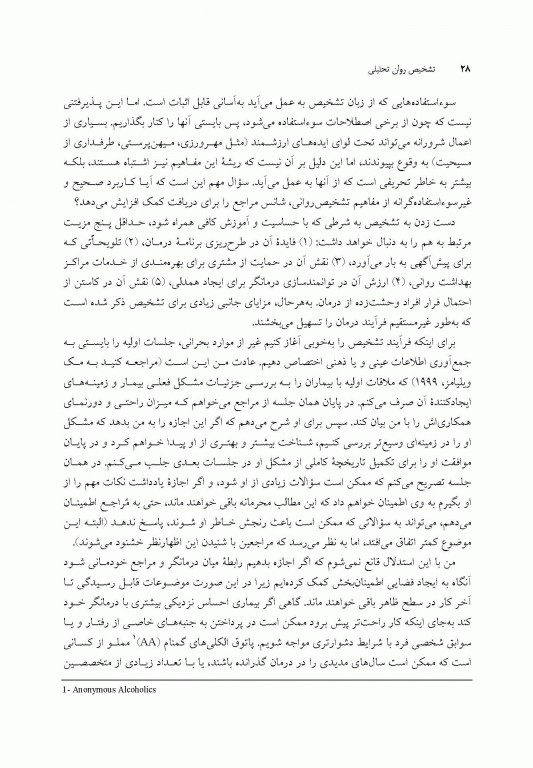 ۲۸ تشخیص روان تحلیلی
سوءاستفاده‌هایی که از زبان تشخیص به عمل می‌آید به‌آسانی قابل اثبات است. اما این پذیرفتنی
نیست که چون از برخی اصطلاحات سوءاستفاده می‌شود، پس بایستی آنها را کنار بگذاریم. بسیاری از
اعمال شرورانه می‌تواند تحت لوای ایده‌های ارزشمند (مثل مهرورزی، میهن‌پرستی، طرفداری از
مسیحیت) به وقوع بپیوندند، اما این دلیل بر آن نیست که ریشهٔ این مفاهیم نیز اشتباه هستند، بلکه
بیشتر به خاطر تحریفی است که از آنها به عمل می‌آید. سؤال مهم این است که آیا کاربرد صحیح و
غیرسوءاستفاده‌گرانه از مفاهیم تشخیص‌روانی، شانس مراجع را برای دریافت کمک افزایش می‌دهد؟
دست زدن به تشخیص به شرطی که با حساسیت و آموزش کافی همراه شود، حداقل پنج مزیت
مرتبط به هم را به دنبال خواهد داشت: (۱) فایدهٔ آن در طرح‌ریزی برنامهٔ درمان، (۲) تلویحاتی که
برای پیش‌آگهی به بار می‌آورد، (۳) نقش آن در حمایت از مشتری برای بهره‌مندی از خدمات مراکز
بهداشت روانی، (۴) ارزش آن در توانمندسازی درمانگر برای ایجاد همدلی، (۵) نقش آن در کاستن از
احتمال فرار افراد وحشت‌زده از درمان. به‌هرحال، مزایای جانبی زیادی برای تشخیص ذکر شده است
که به‌طور غیرمستقیم فرآیند درمان را تسهیل می‌بخشند.
برای اینکه فرآیند تشخیص را به‌خوبی آغاز کنیم غیر از موارد بحرانی، جلسات اولیه را بایستی به
جمع‌آوری اطلاعات عینی و یا ذهنی اختصاص دهیم. عادت من این است (مراجعه کنید به مک
ویلیامز، ۱۹۹۹) که ملاقات اولیه با بیماران را به بررسی جزئیات مشکل فعلی بیمار و زمینه‌های
ایجادکنندهٔ آن صرف می‌کنم. در پایان همان جلسه از مراجع می‌خواهم که میزان راحتی و دورنمای
همکاری‌اش را با من بیان کند. سپس برای او شرح می‌دهم که اگر این اجازه را به من بدهد که مشکل
او را در زمینه‌ای وسیع‌تر بررسی کنیم، شناخت بیشتر و بهتری از او پیدا خواهم کرد و در پایان
موافقت او را برای تکمیل تاریخچهٔ کاملی از مشکل او در جلسات بعدی جلب می‌کنم. در همان
جلسه تصریح می‌کنم که ممکن است سؤالات زیادی از او شود، و اگر اجازهٔ یادداشت نکات مهم را از
او بگیرم به وی اطمینان خواهم داد که این مطالب محرمانه باقی خواهند ماند، حتی به مُراجع اطمینان
می‌دهم، می‌تواند به سؤالاتی که ممکن است باعث رنجش خاطر او شوند، پاسخ ندهد (البته این
موضوع کمتر اتفاق می‌افتد، اما به نظر می‌رسد که مراجعین با شنیدن این اظهارنظر خشنود می‌شوند).
من با این استدلال قانع نمی‌شوم که اگر اجازه بدهیم رابطهٔ میان درمانگر و مراجع خودمانی شود
آنگاه به ایجاد فضایی اطمینان‌بخش کمک کرده‌ایم زیرا در این صورت موضوعات قابل رسیدگی تا
آخر کار در سطح ظاهر باقی خواهند ماند. گاهی اگر بیماری احساس نزدیکی بیشتری با درمانگر خود
کند به‌جای اینکه کار راحت‌تر پیش برود ممکن است در پرداختن به جنبه‌های خاصی از رفتار و یا
سوابق شخصی فرد با شرایط دشوارتری مواجه شویم. پاتوق الکلی‌های گمنام (AA)۱ مملو از کسانی
است که ممکن است سال‌های مدیدی را در درمان گذرانده باشند، یا با تعداد زیادی از متخصصین
1- Anonymous Alcoholics